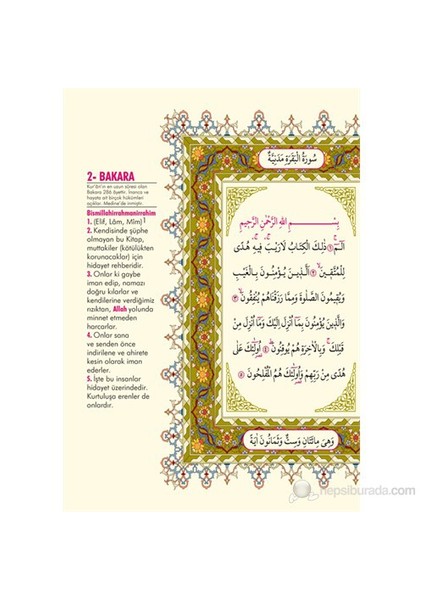 2- BAKARA
Kur'ân'ın en uzun sûresi olan
Bakara 286 âyettir. İnanca ve
hayata ait birçok hükümleri
açıklar. Medine'de inmiştir.
Bismillahirrahmanirrahim
1. (Elif, Lâm, Mîm)
2. Kendisinde şüphe
olmayan bu Kitap,
muttakiler (kötülükten
korunacaklar) için
hidayet rehberidir.
3. Onlar ki gaybe
iman edip, namazı
doğru kılarlar ve
kendilerine verdiğimiz
rızıktan, Allah yolunda
minnet etmeden
harcarlar.
4. Onlar sana
ve senden önce
indirilene ve ahirete
kesin olarak iman
ederler.
5. İşte bu insanlar
hidayet üzerindedir.
Kurtuluşa erenler de
onlardır.
سُورَةُ الْبَقَرَةِ مَدَنِيَّةٌ
بِسْمِ اللّٰهِ الرَّحْمٰنِ الرَّحِيمِ
الٓمٓ ﴿١﴾ ذٰلِكَ الْكِتَابُ لَا رَيْبَ فِيهِ هُدًى
لِلْمُتَّقِينَ ﴿٢﴾ اَلَّذِينَ يُؤْمِنُونَ بِالْغَيْبِ
وَيُقِيمُونَ الصَّلٰوةَ وَمِمَّا رَزَقْنَاهُمْ يُنْفِقُونَ ﴿٣﴾
وَالَّذِينَ يُؤْمِنُونَ بِمَٓا اُنْزِلَ اِلَيْكَ وَمَٓا اُنْزِلَ مِنْ
قَبْلِكَ وَبِالْاٰخِرَةِ هُمْ يُوقِنُونَ ﴿٤﴾ اُولٰٓئِكَ عَلٰى
هُدًى مِنْ رَبِّهِمْ وَاُولٰٓئِكَ هُمُ الْمُفْلِحُونَ ﴿٥﴾
وَهِىَ مِائَتَانِ وَسِتٌّ وَثَمَانُونَ اٰيَةً
hepsiburada.com